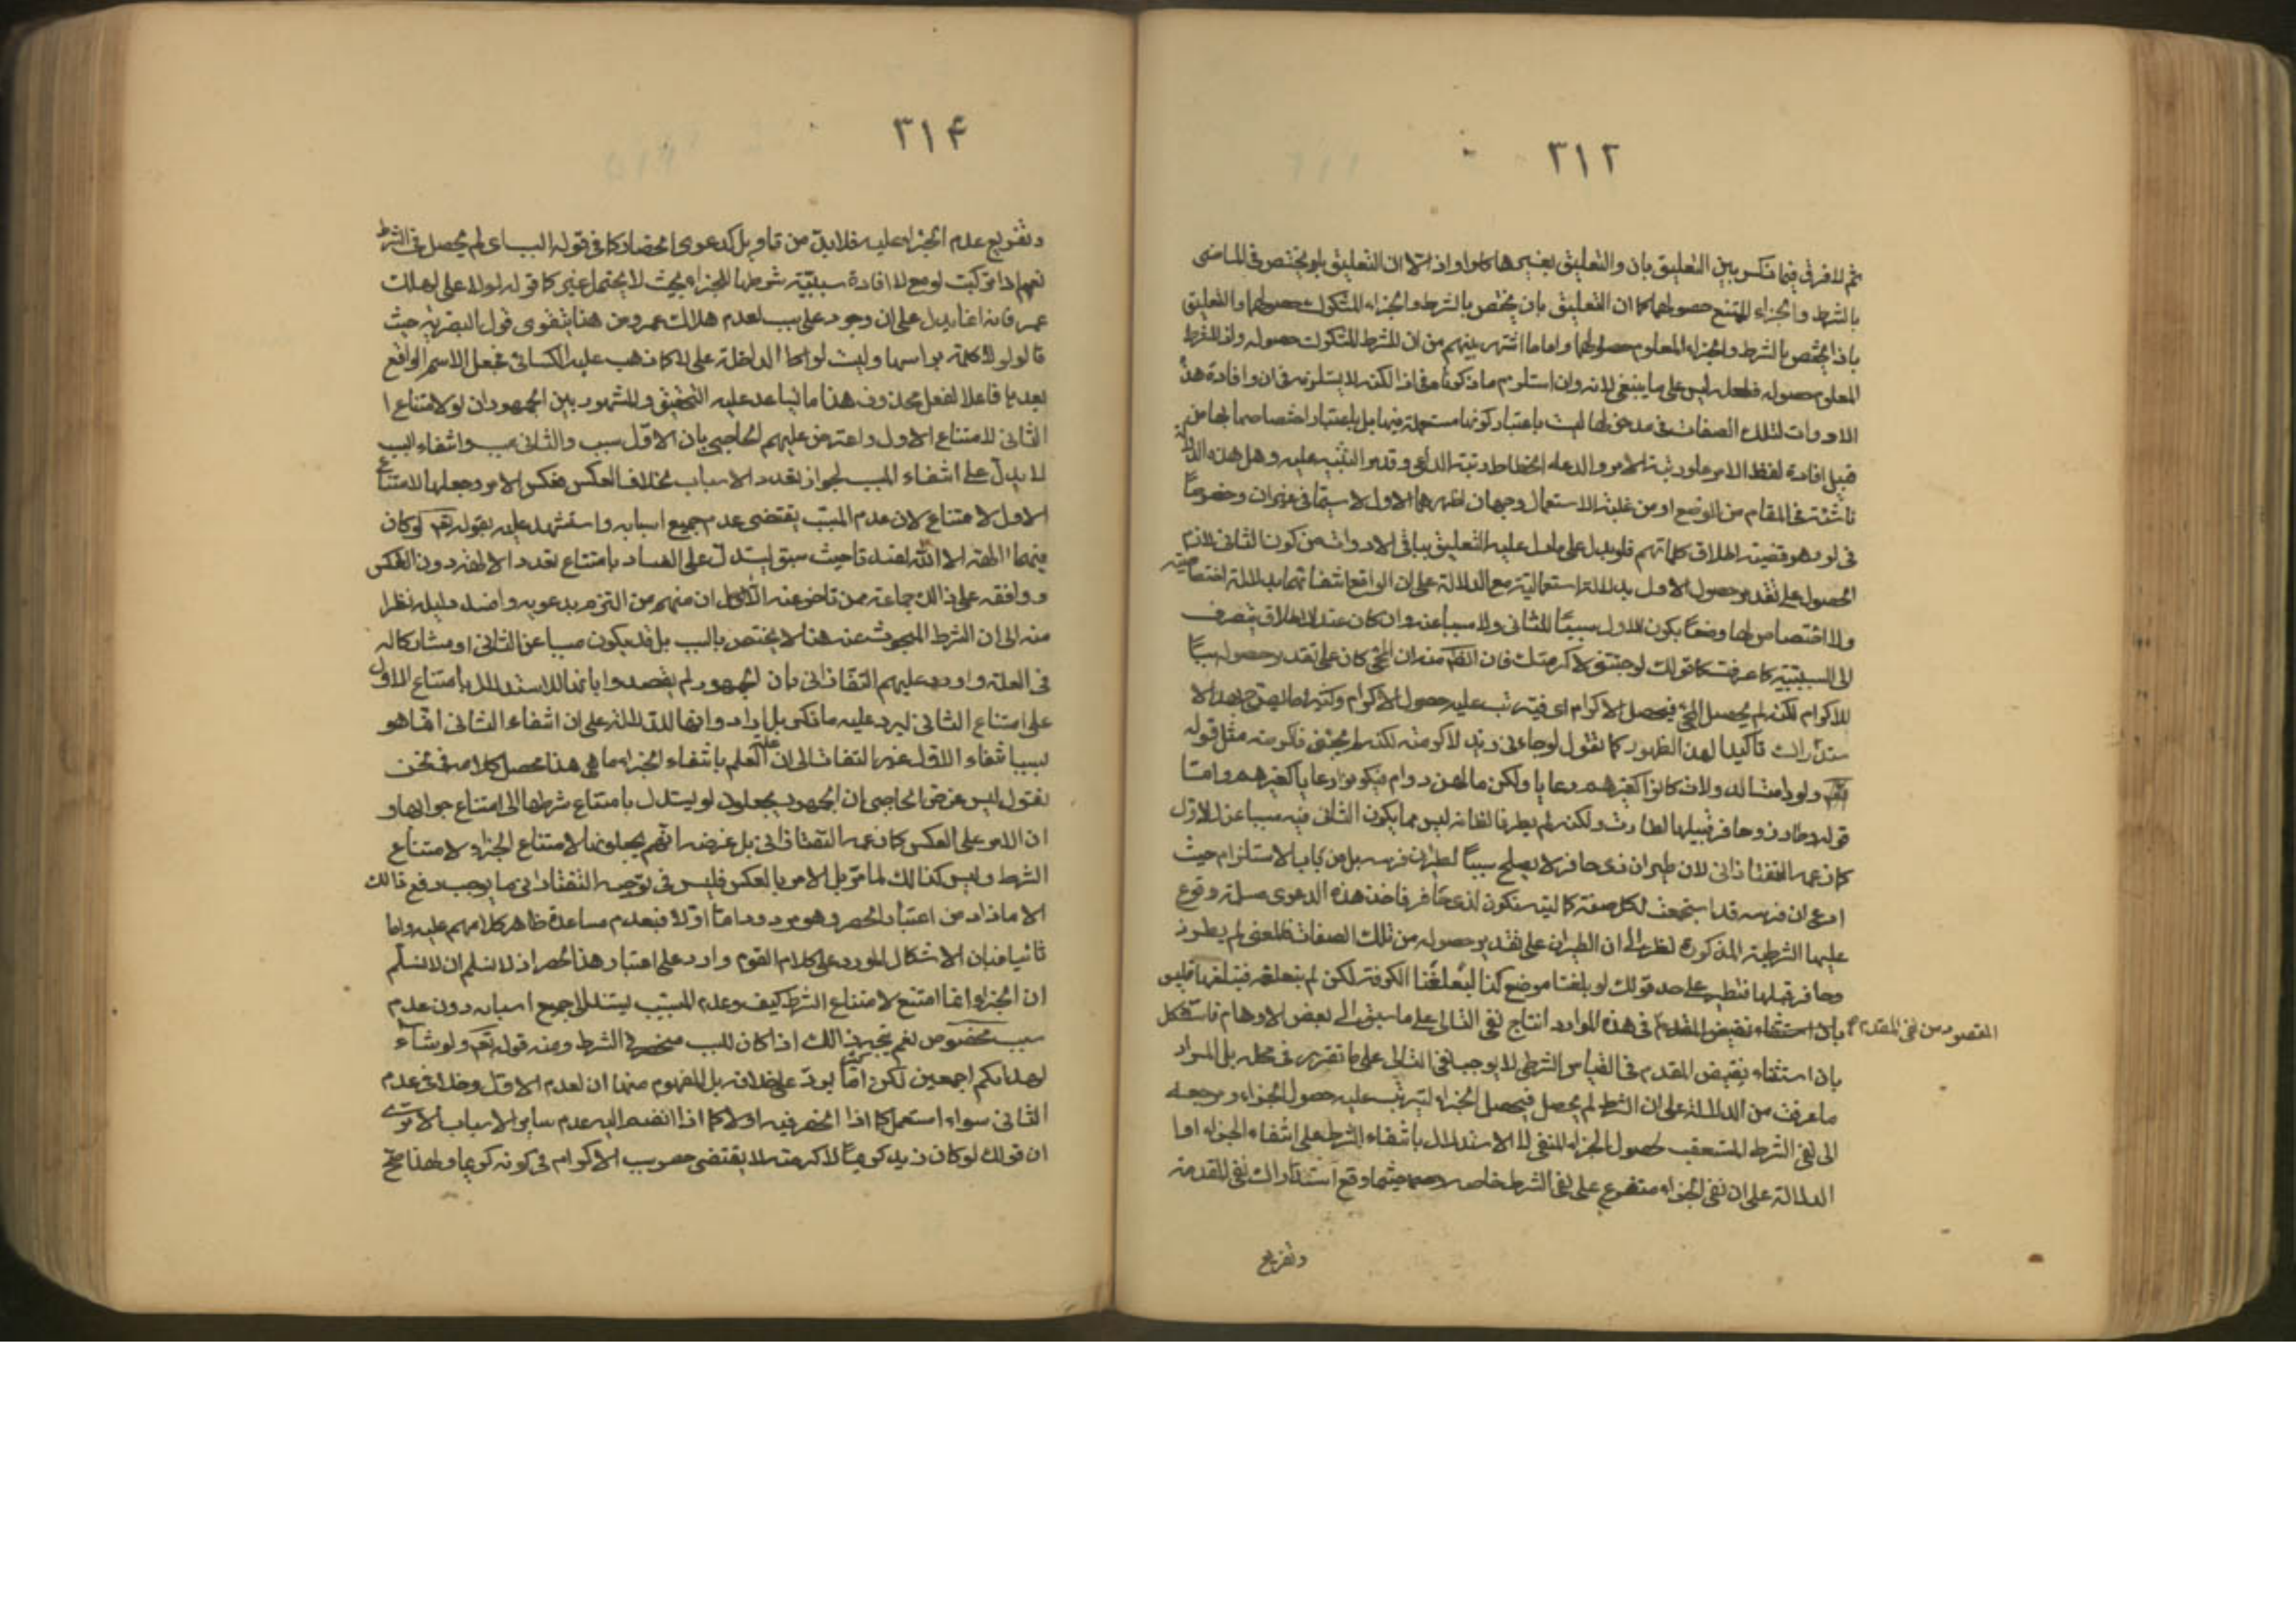 ٣١٢
ثم لا فرق فيما ذكر بين التعليق بان والتعليق بغيرها كلو واذا الا ان التعليق بلو يختص في الماضي
بالشرط والجزاء الممتنع حصولهما كما ان التعليق بان يختص بالشرط والجزاء المشكوك حصولهما والتعليق
باذا يختص بالشرط والجزاء المعلوم حصولهما واما ما اشتهر بينهم من ان للشرط المشكوك حصوله واذا للشرط
المعلوم حصوله فلعله ليس على ما ينبغي لانه وان استلزم ما ذكرناه في اذا لكنه لا يستلزمه في ان وافادة هذه
الادوات لتلك الصفات في مدخولها ليست باعتبار كونها مستعملة فيها بل باعتبار اختصاصها بها من
قبيل افادة لفظ الامر علو رتبة الامر والدعاء انحطاط رتبة الداعي وقد مر التنبيه عليه وهل هذه الدلالة
ناشئة في المقام من الوضع او من غلبة الاستعمال وجهان اظهرهما الاول لا سيما في غير ان وخصوصا
في لو وهو قضية اطلاق كلماتهم فلو يدل على ما دل عليه التعليق بباقي الادوات من كون الثاني لازم
الحصول على تقدير حصول الاول بدلالة استعمالية مع الدلالة على ان الواقع انتفائهما بدلالة اختصاصية
ولا اختصاص لها وضعا بكون الاول سببا للثاني ولا مسببا عنه وان كان عند الاطلاق ينصرف
الى السببية كما عرفت كما قولك لو جئتني لاكرمتك فان الظاهر منه ان المجئ كان على تقدير حصوله سببا
للاكرام لكنه لم يحصل المجئ فيحصل الاكرام اي فيترتب عليه حصول الاكرام وكثيرا ما يصرح بهذا الا
ستدراك تاكيدا لهذا الظهور كما تقول لو جاءني زيد لاكرمته لكنه لم يجئني فاكرمته مثل قوله
ولو دامت الدولات كانوا كغيرهم رعايا ولكن ما لهن دوام فيكونوا رعايا كغيرهم واما
قوله ولو طار ذو حافر قبلها لطارت ولكنه لم يطر فالظاهر انه ليس مما يكون الثاني فيه مسببا عن الاول
كما زعمه التفتازاني لان طيران ذي حافر لا يصلح سببا لطيران فرسه بل من باب الاستلزام حيث
ادعى ان فرسه قد استجمعت لكل صفة كمالية تكون لذي حافر فاخذ هذه الدعوى مسلمة وفرع
عليها الشرطية المذكورة نظرا الى ان الطيران على تقدير حصوله من تلك الصفات فالمعنى لم يطر ذو
حافر قبلها فتطير على حد قولك لو بلغنا موضع كذا لبلغنا الكوفة لكن لم نبلغه فنبلغها فليس
المقصود من نفي المقدم
بان استثناء نقيض المقدم في هذه الموارد انتاج نفي التالي على ما سبق الى بعض الاوهام فاستشكل
بان استثناء نقيض المقدم في القياس الشرطي لا يوجب نفي التالي على ما تقرر في محله بل المراد
ما عرفت من الدلالة على ان الشرط لم يحصل فيحصل الجزاء ليترتب عليه حصول الجزاء ومرجعه
الى نفي الشرط المستعقب لحصول الجزاء المنفي لا الاستدلال بانتفاء الشرط على انتفاء الجزاء اما
الدلالة على ان نفي الجزاء متفرع على نفي الشرط خاصة حيثما وقع استدراك نفي المقدمة
وتفريع
٣١٤
وتفريع عدم الجزاء عليه فلا بد من تاويل كدعوى انحصار كما في قوله السابق اي لم يحصل في الشرط
نعم اذا تركبت لو مع لا افادة سببية شرطها للجزاء بحيث لا يحتمل غير كما قوله لولا علي لهلك
عمر فانه انما يدل على ان وجود علي سبب لعدم هلاك عمر ومن هنا يتقوى قول البصرية حيث
قالوا لولا كلمة براسها وليست لو الداخلة على لا كما ذهب عليه الكسائي فجعل الاسم الواقع
بعدها فاعلا لفعل محذوف هذا ما يساعد عليه التحقيق والمشهور بين الجمهور ان لو لامتناع ا
الثاني لامتناع الاول واعترض عليهم الحاجبي بان الاول سبب والثاني مسبب وانتفاء السبب
لا يدل على انتفاء المسبب لجواز تعدد الاسباب بخلاف العكس فعكس الامر وجعلها لامتناع
الاول لامتناع لان عدم المسبب يقتضي عدم جميع اسبابه واستشهد عليه بقوله تعالى لو كان
فيهما الهة الا الله لفسدتا حيث سبق ليستدل على الفساد بامتناع تعدد الالهة دون العكس
ووافقه على ذلك جماعة ممن تاخر عنه الا ان منهم من التزم بدعويه وافسد دليله نظرا
منه الى ان الشرط المبحوث عنه هنا لا يختص بالسبب بل قد يكون مسببا عن الثاني او مشاركا له
في العلة واورد عليهم التفتازاني بان الجمهور لم يقصدوا بانها للاستدلال بامتناع الاول
على امتناع الثاني ليرد عليه ما ذكر بل ارادوا انها للدلالة على ان انتفاء الثاني انما هو
بسبب انتفاء الاول من غير التفات الى ان علة العلم بانتفاء الجزاء ما هي هذا محصل كلامه ونحن
نقول ليس غرض الحاجبي ان الجمهور يجعلون لو ليستدل بامتناع شرطها الى امتناع جوابها و
ان الامر على العكس كما زعمه التفتازاني بل غرضه انهم يجعلونها لامتناع الجزاء لامتناع
الشرط وليس كذلك لما مر بل الامر بالعكس فليس في توجيه التفتازاني ما يوجب دفع ذلك
الا ما زاد من اعتبار الحصر وهو مردود اما اولا فبعدم مساعدة ظاهر كلامهم عليه واما
ثانيا فبان الاشكال المورد على كلام القوم وارد على اعتبار هذا الحصر اذ لا نسلم ان لا نسلم
ان الجزاء انما امتنع لامتناع الشرط كيف وعدم المسبب يستدل جميع اسبابه دون عدم
سبب مخصوص نعم يتجه ذلك اذا كان للسبب منحصر في الشرط ومنه قوله تعالى ولو شاء
لهداكم اجمعين لكن انما يرد على خلافه بل المفهوم منهما ان لعدم الاول دخلا في عدم
الثاني سواء استعمل كما اذا انحصر فيه اولا كما اذا انضم اليه عدم ساير الاسباب الا ترى
ان قولك لو كان زيد كريما لاكرمته لا يقتضي حصر سبب الاكرام في كونه كريما ولهذا صح